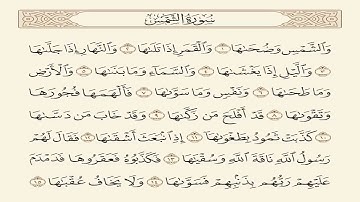 سُورَةُ الشَّمْسِ
وَالشَّمْسِ وَضُحَىٰهَا ١ وَالْقَمَرِ إِذَا تَلَىٰهَا ٢ وَالنَّهَارِ إِذَا جَلَّىٰهَا
٣ وَالَّيْلِ إِذَا يَغْشَىٰهَا ٤ وَالسَّمَآءِ وَمَا بَنَىٰهَا ٥ وَالْأَرْضِ
وَمَا طَحَىٰهَا ٦ وَنَفْسٍ وَمَا سَوَّىٰهَا ٧ فَأَلْهَمَهَا فُجُورَهَا
وَتَقْوَىٰهَا ٨ قَدْ أَفْلَحَ مَن زَكَّىٰهَا ٩ وَقَدْ خَابَ مَن دَسَّىٰهَا
١٠ كَذَّبَتْ ثَمُودُ بِطَغْوَىٰهَا ١١ إِذِ انۢبَعَثَ أَشْقَىٰهَا ١٢ فَقَالَ لَهُمْ
رَسُولُ اللَّهِ نَاقَةَ اللَّهِ وَسُقْيَىٰهَا ١٣ فَكَذَّبُوهُ فَعَقَرُوهَا فَدَمْدَمَ
عَلَيْهِمْ رَبُّهُم بِذَنۢبِهِمْ فَسَوَّىٰهَا ١٤ وَلَا يَخَافُ عُقْبَىٰهَا ١٥